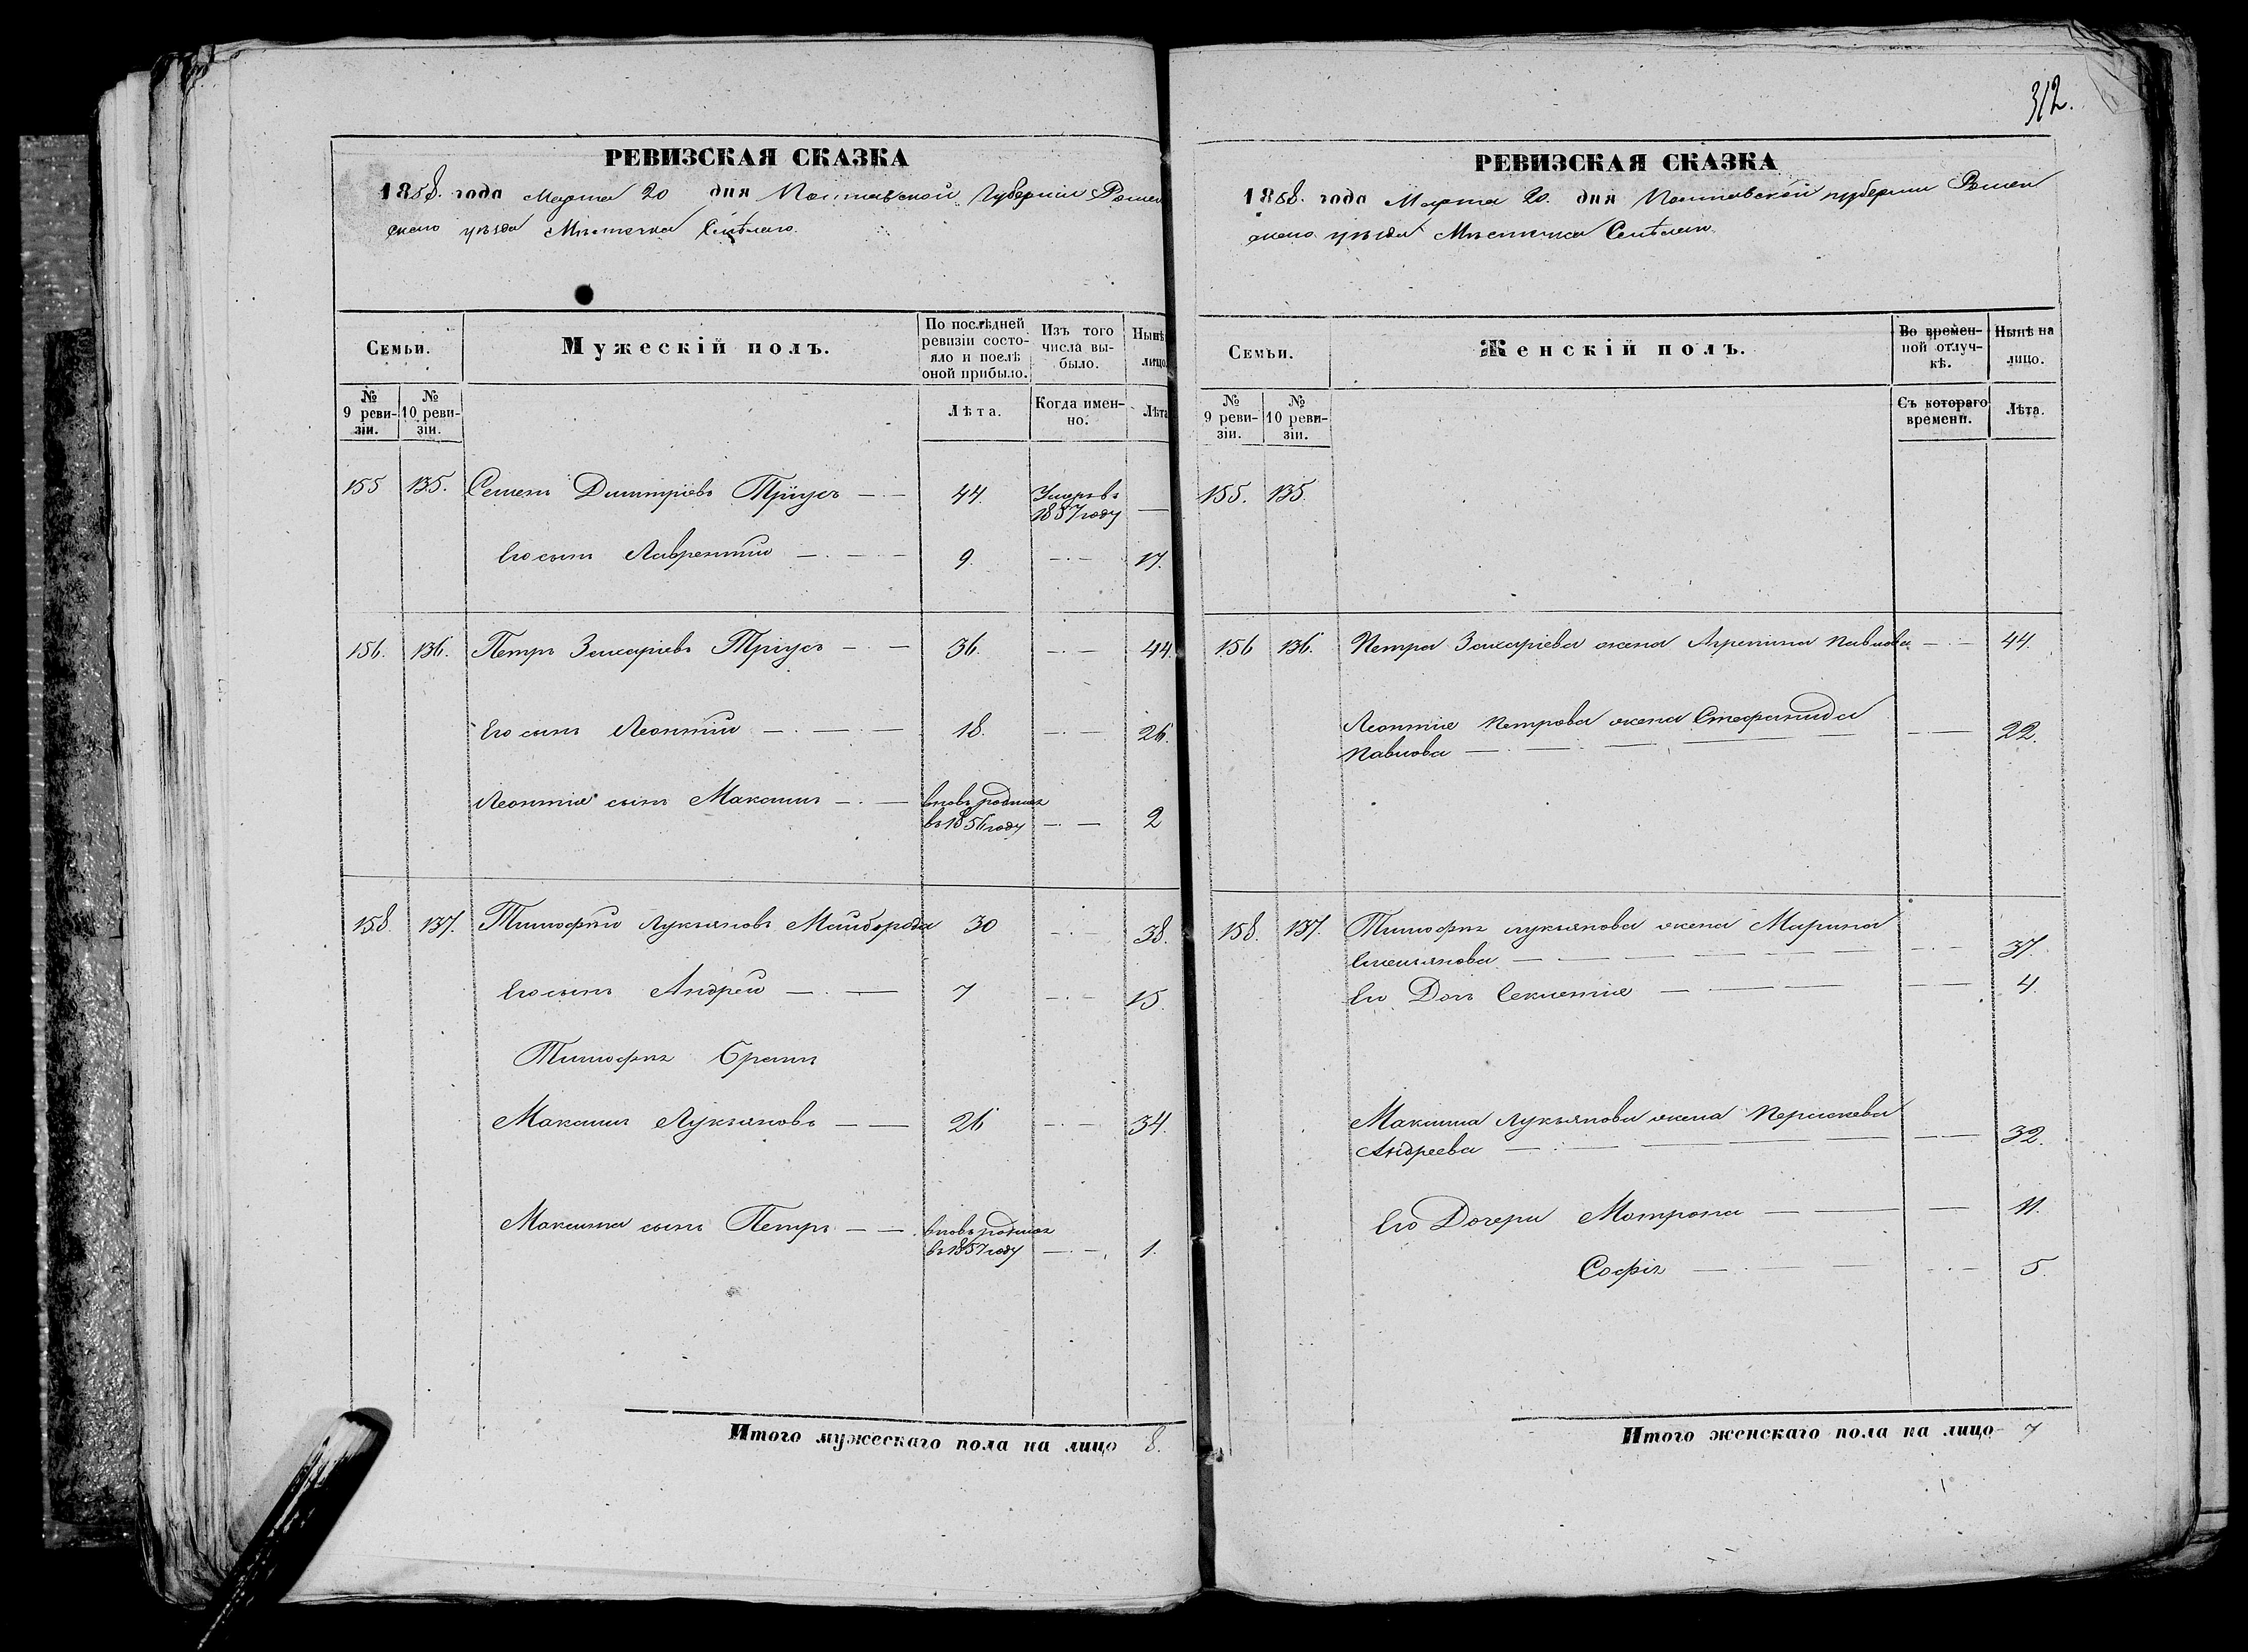 312.
РЕВИЗСКАЯ СКАЗКА
1858. года Марта 20 дня Полтавской Губерніи Ромен
скаго уѣзда Мѣстечка Смѣлаго.
Семьи.
Мужескій полъ.
По послѣдней ревизіи состо-
яло и послѣ оной прибыло.
Изъ того числа вы-
было.
Нынѣ
лицо
№ 9 реви-
зіи.
№ 10 реви-
зіи.
Лѣта.
Когда имен-
но.
Лѣта
155 135. Семенъ Димитріевъ Тріусъ 44. Умеръ въ
1857 году
Его сынъ Лаврентій 9. 17.
156. 136. Петръ Захаріевъ Тріусъ 36. 44.
Его сынъ Леонтій 18. 26.
Леонтія сынъ Максимъ вновь родился
въ 1856 году 2
158. 137. Тимофѣй Лукьяновъ Майборода 30 38.
Его сынъ Андрей 7 15.
Тимофѣя братъ
Максимъ Лукьяновъ 26 34.
Максима сынъ Петръ вновь родился
въ 1857 году 1.
Итого мужескаго пола на лицо 8.
РЕВИЗСКАЯ СКАЗКА
1858. года Марта 20. дня Полтавской губерніи Ромен
скаго уѣзда Мѣстечка Смѣлаго.
Семьи.
Женскій полъ.
Во времен-
ной отлуч-
кѣ.
Нынѣ на
лицо.
№ 9 реви-
зіи.
№ 10 реви-
зіи.
Съ котораго
времени.
Лѣта.
155. 135.
156 136. Петра Захаріева жена Агрепина Павлова 44.
Леонтія Петрова жена Стефанида
Павлова 22.
158. 137. Тимофѣя Лукьянова жена Марина
Емельянова 37.
Его Дочь 4.
Максима Лукьянова жена Параскева
Андреева 32.
Его Дочери Матрона 11.
Софія 5.
Итого женскаго пола на лицо 7